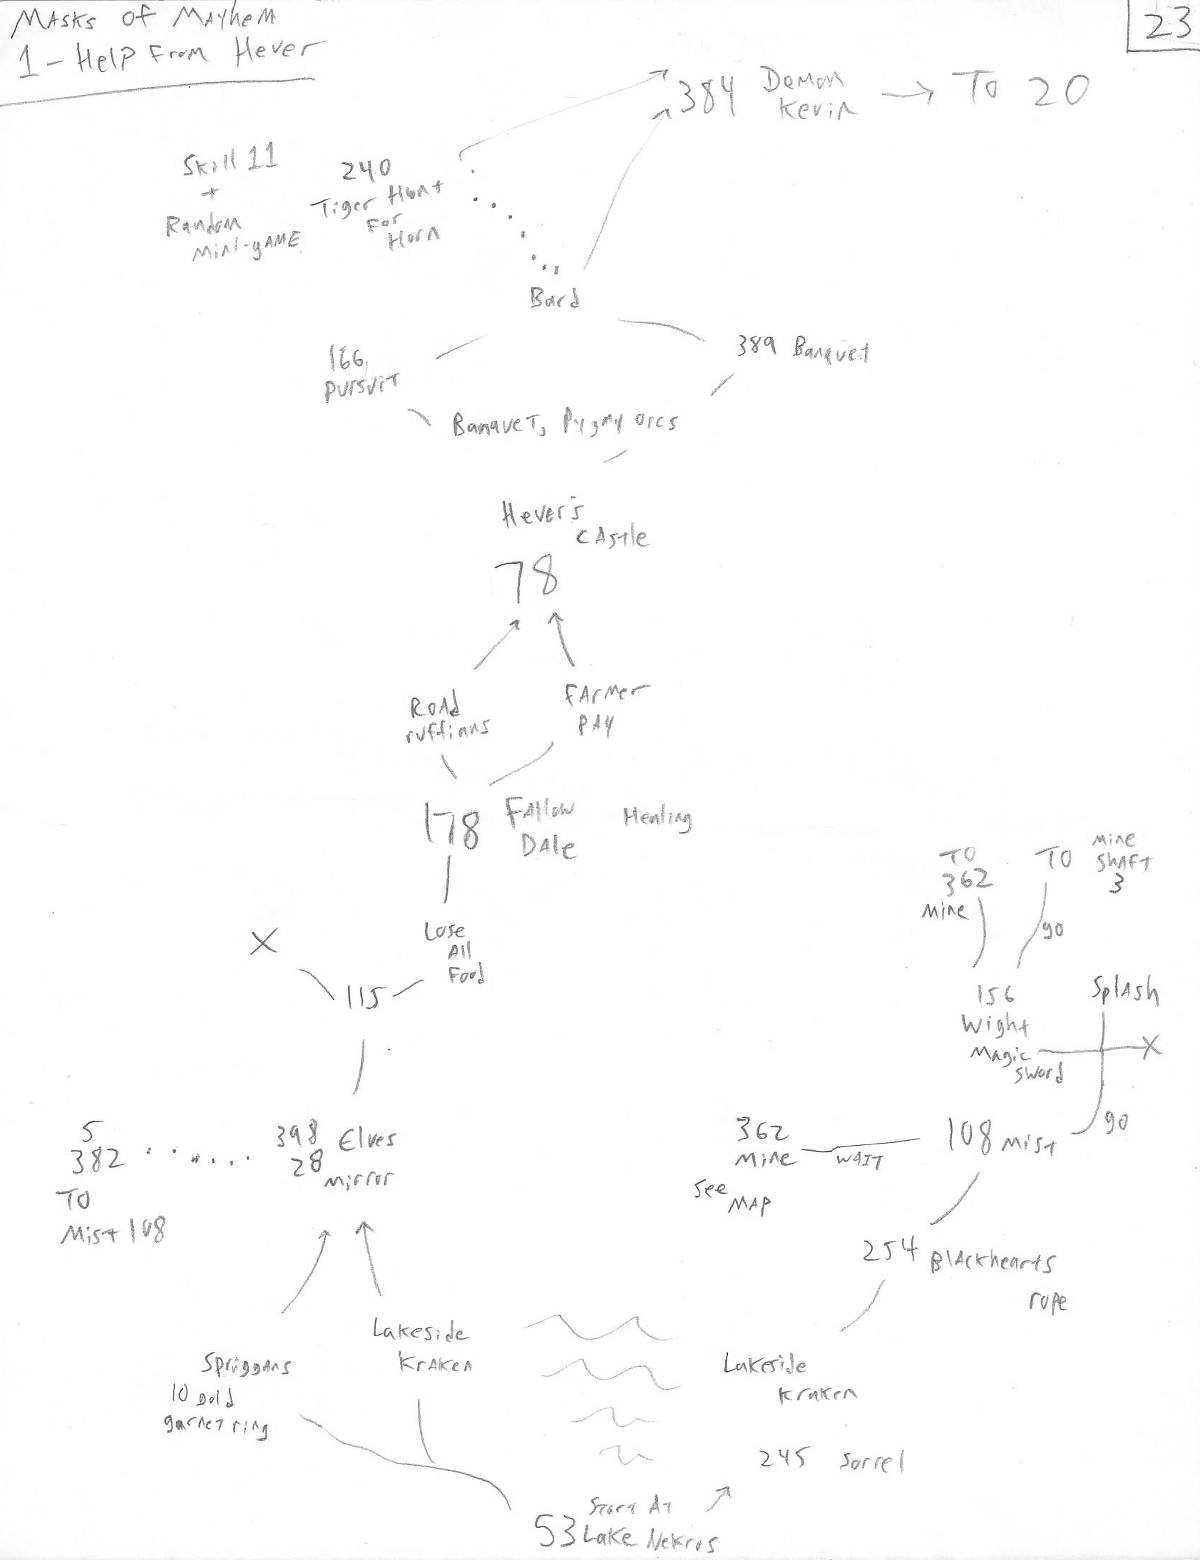 Masks of Mayhem
23
1 - Help From Hever
384 Demon Kevin → To 20
Skill 11
+
Random
Mini-game
240
Tiger Hunt
For
Horn
Bard
166
Pursuit
389 Banquet
Banquet, Pygmy Orcs
Hever's
Castle
78
Road
ruffians
Farmer
Pay
178
Fallow
Dale
Healing
Lose
All
Food
X
115
To
362
Mine
To
Mine
Shaft
3
90
156
Wight
Magic
Sword
Splash
X
90
108 Mist
362
Mine
Wait
See
Map
5
382
To
Mist 108
398 Elves
28
Mirror
254 Blackhearts
rope
Lakeside
Kraken
Spriggans
10 Gold
garnet ring
Lakeside
Kraken
245 Sorrel
Start At
53 Lake Nekros